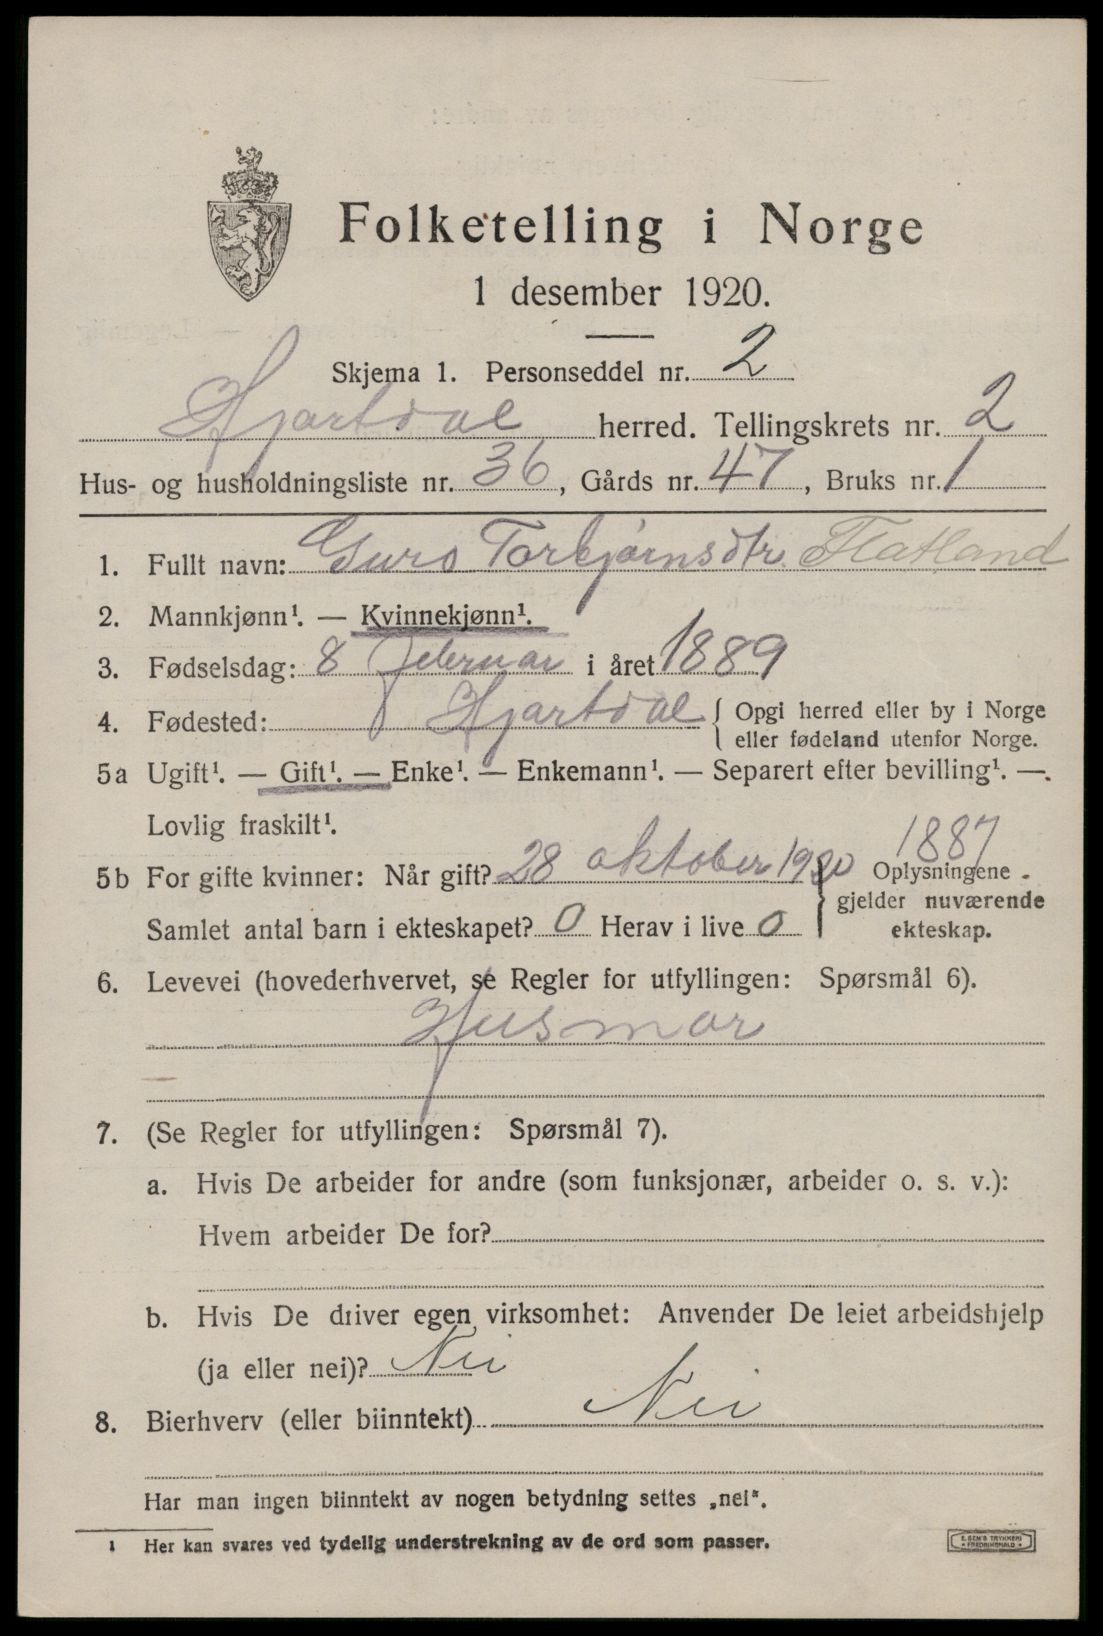 Folketelling i Norge
1 desember 1920.
Skjema 1. Personseddel nr. 2
Hjartdal herred. Tellingskrets nr. 2
Hus- og husholdningsliste nr. 36, Gårds nr. 47, Bruks nr. 1
1. Fullt navn: Guro Torbjørnsdtr. Flatland
2. Mannkjønn¹. — Kvinnekjønn¹.
3. Fødselsdag: 8 februar i året 1889
4. Fødested: Hjartdal { Opgi herred eller by i Norge
eller fødeland utenfor Norge.
5a Ugift¹. — Gift¹. — Enke¹. — Enkemann¹. — Separert efter bevilling¹. —
Lovlig fraskilt¹.
1887
5b For gifte kvinner: Når gift? 28 oktober 1920 } Oplysningene
gjelder nuværende
Samlet antal barn i ekteskapet? 0 Herav i live 0 ekteskap.
6. Levevei (hovederhvervet, se Regler for utfyllingen: Spørsmål 6).
Husmor
7. (Se Regler for utfyllingen: Spørsmål 7).
a. Hvis De arbeider for andre (som funksjonær, arbeider o. s. v.):
Hvem arbeider De for?
b. Hvis De driver egen virksomhet: Anvender De leiet arbeidshjelp
(ja eller nei)? Nei
8. Bierhverv (eller biinntekt) Nei
Har man ingen biinntekt av nogen betydning settes „nei".
1 Her kan svares ved tydelig understrekning av de ord som passer.